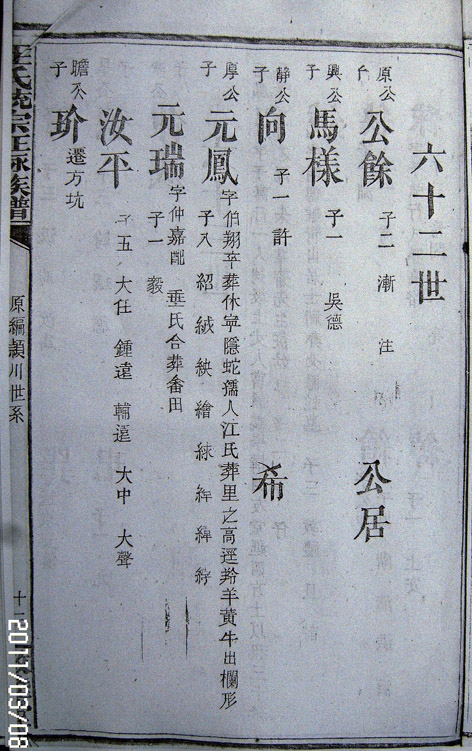 六十二世
原公子 公餘 子二 漸 注 公居
興公子 馬樣 子一 吳德
靜公子 向 子一許 希
厚公子 元鳳 字伯翔卒葬休寧隱蛇孺人江氏葬里之高逕羚羊黃牛出欄形
子八 紹 絨 紻 繪 綠 緈 緯 紵
元瑞 字仲嘉配 垂氏合葬畬田
子一 毅
汝平 子五 大任 鍾遠 輔逵 大中 大聲
瞻公子 玠 遷方坑
氏統宗正脉族譜
原編頴川世系
十二
2011/03/08